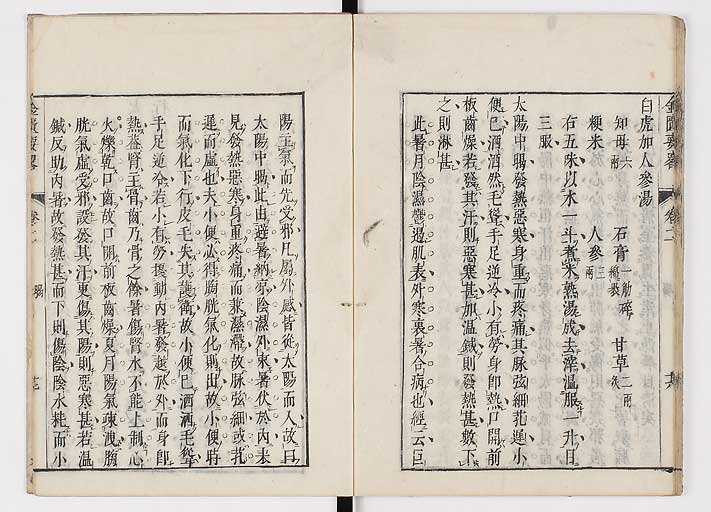 白虎加人參湯
知母六兩 石膏一觔碎 甘草二兩炙
粳米 人參三兩
右五味以水一斗煮米熟湯成去滓溫服一升日
三服
太陽中暍發熱惡寒身重而疼痛其脉弦細芤遲小
便已洒洒然毛聳手足逆冷小有勞身即熱口開前
板齒燥若發其汗則惡寒甚加溫鍼則發熱甚數下
之則淋甚
此暑月陰濕鬱遏肌表外寒裏暑合病也經云巨
陽主氣而先受邪凡屬外感皆從太陽而入故曰
太陽中暍此由避暑納凉陰濕外束暑伏於內未
見發熱惡寒身重疼痛而兼濕滯故脉弦細或芤
遲而虛也夫小便必得膀胱氣化則出故小便時
而氣化下行皮毛失其護衞故小便已洒洒毛聳
手足逆冷若小有勞擾動內暑發越於外而身即
熱蓋腎主骨齒乃骨之餘暑傷腎水不能上制心
火爍乾口齒故口開前板齒燥夏月陽氣疎洩膀
胱氣虛受邪誤發其汗更傷其陽則惡寒甚若溫
鍼反助內暑故發熱甚而下則傷陰陰水耗而小
金匱要畧 卷二